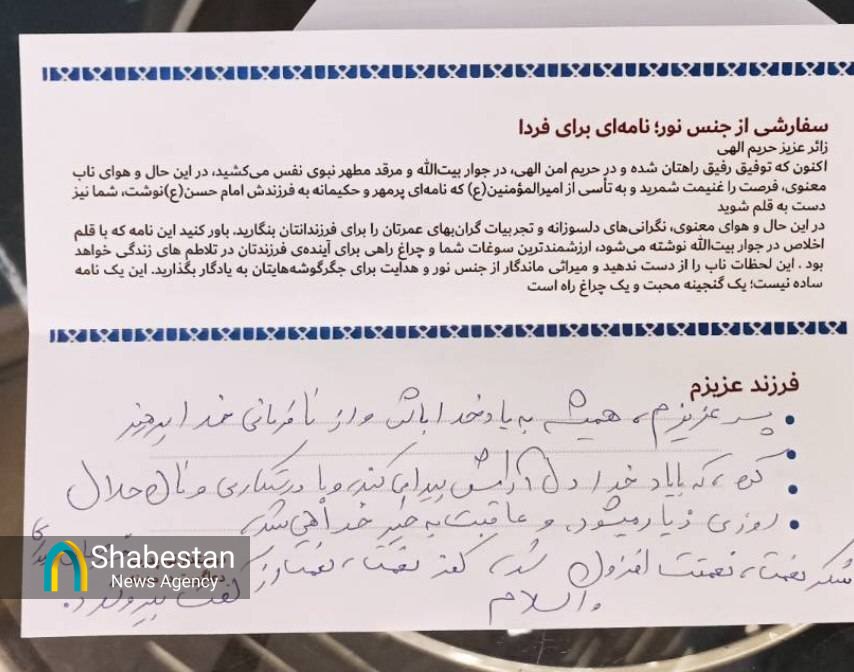 سفارشی از جنس نور؛ نامه‌ای برای فردا
زائر عزیز حریم الهی
اکنون که توفیق رفیق راهتان شده و در حریم امن الهی، در جوار بیت‌الله و مرقد مطهر نبوی نفس می‌کشید، در این حال و هوای ناب
معنوی، فرصت را غنیمت شمرید و به تأسی از امیرالمؤمنین(ع) که نامه‌ای پرمهر و حکیمانه به فرزندش امام حسن(ع)نوشت، شما نیز
دست به قلم شوید
در این حال و هوای معنوی، نگرانی‌های دلسوزانه و تجربیات گران‌بهای عمرتان را برای فرزندانتان بنگارید. باور کنید این نامه که با قلم
اخلاص در جوار بیت‌الله نوشته می‌شود، ارزشمندترین سوغات شما و چراغ راهی برای آینده‌ی فرزندتان در تلاطم های زندگی خواهد
بود . این لحظات ناب را از دست ندهید و میراثی ماندگار از جنس نور و هدایت برای جگرگوشه‌هایتان به یادگار بگذارید. این یک نامه
ساده نیست؛ یک گنجینه محبت و یک چراغ راه است
فرزند عزیزم
پسر عزیزم، همیشه به یاد خدا باش و از نافرمانی خدا پرهیز
کن، که با یاد خدا دل آرامش پیدا می‌کند، و با درستکاری و نان حلال
روزی زیاد میشود. و عاقبت به خیر خواهی شد،
شکر نعمت، نعمتت افزون کند، کفر نعمت، نعمت از کفت بیرون کند.
والسلام
Shabestan
News Agency